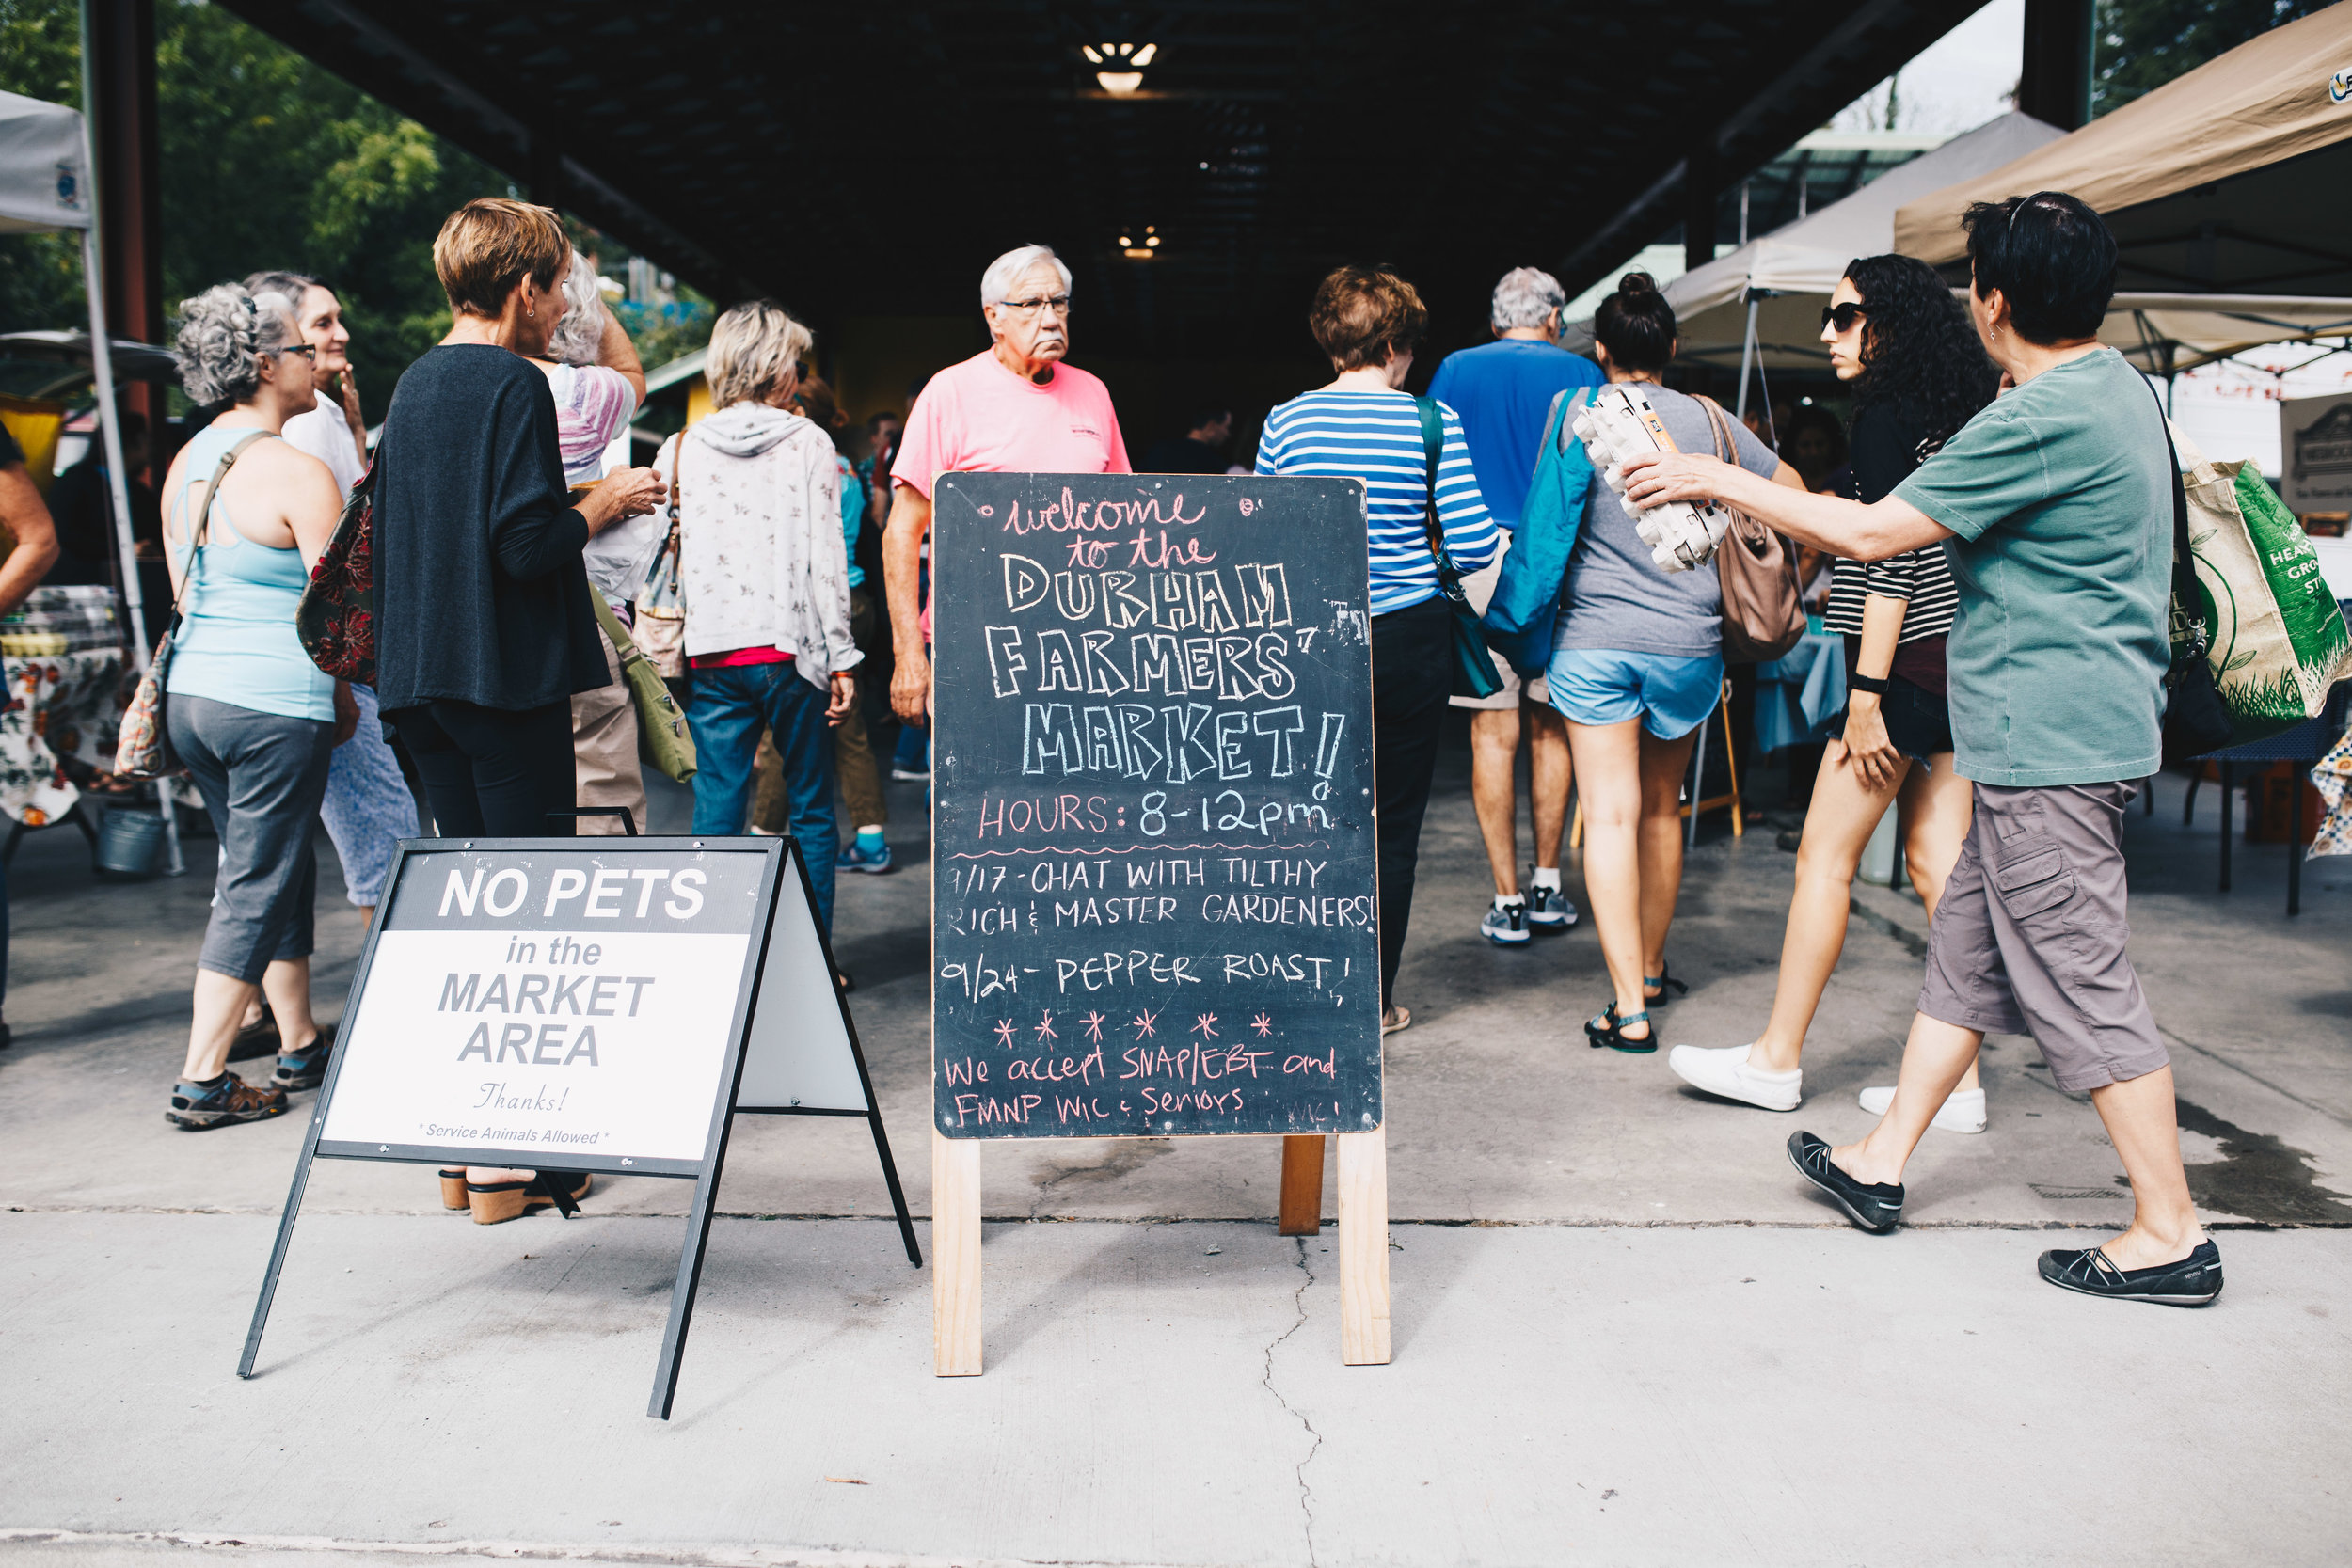 NO PETS
in the
MARKET
AREA
Thanks!
*Service Animals Allowed*
welcome
to the
DURHAM
FARMERS'
MARKET!
HOURS: 8-12pm
9/17-CHAT WITH TILTHY
RICH & MASTER GARDENERS!
9/24- PEPPER ROAST!
* * * * * *
We accept SNAP/EBT and
FMNP WIC & Seniors